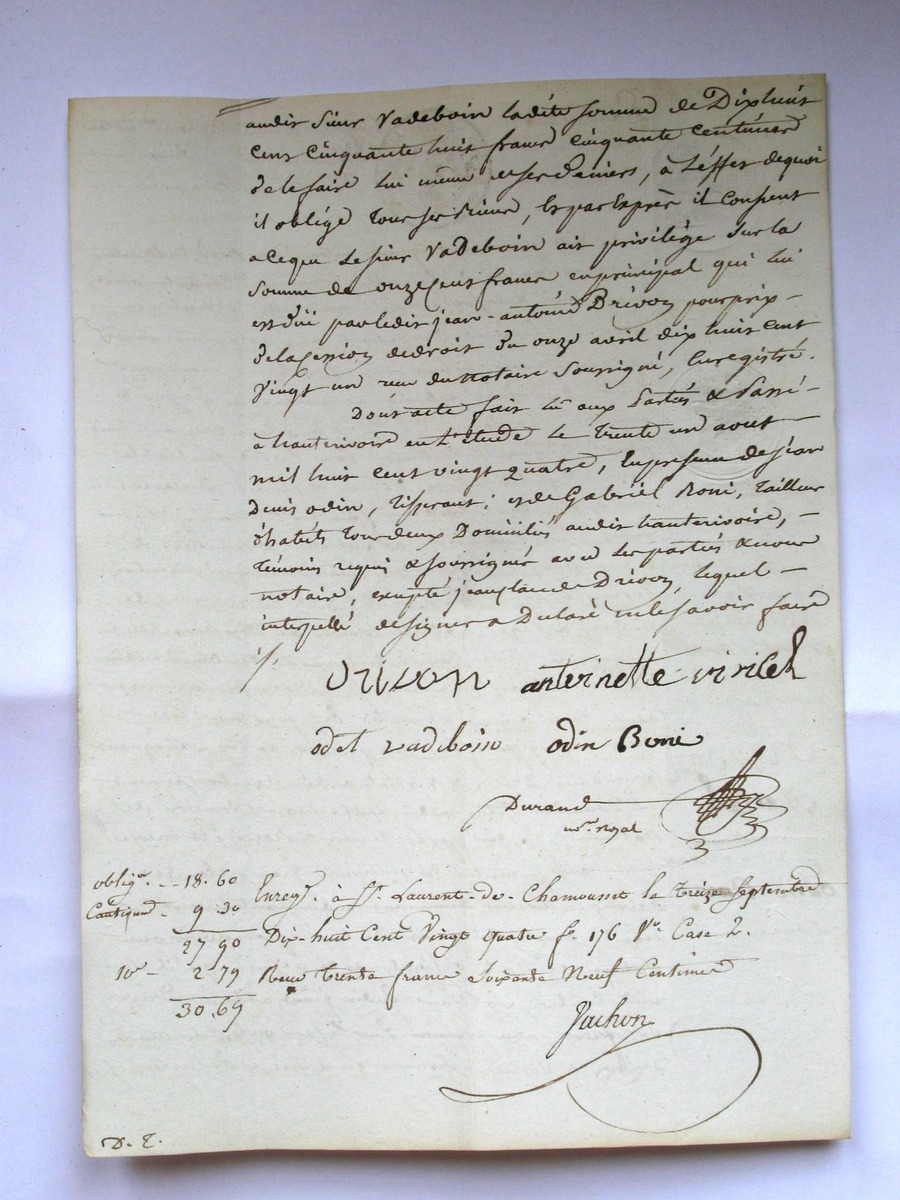 audit Sieur Vadeboin ladite somme de Dix huit
cent cinquante huit francs cinquante centimes
de le faire lui même de ses deniers, à l'effet de quoi
il oblige tous ses biens, et par Exprès il consent
a ceque le sieur Vadeboin ait privilège sur la
somme de onze cent francs en principal qui lui
est düe par ledit jean-antoine Drivon pour prix
de la cession de droit du onze avril dix huit cent
vingt un reçu du notaire soussigné, Enregistré.
Dont acte fait lu aux Parties & Passé
à hauterivoire en L'étude le trente un aout
mil huit cent vingt quatre, En présence de jean
denis odin, tisserant; et de Gabriel Boni, tailleur
d'habits tous deux Domiciliés audit hauterivoire,
témoins requis & soussignés avec les parties & nous
notaire, excepté jean claude Drivon, lequel
interpellé de signer a Déclaré ne le savoir faire
Drivon antoinette viricel
odet vadeboin odin Boni
Durand
nre. Royal
oblign. 18.60 Enregé. à St. Laurent-de-Chamousset le treize Septembre
Cautiont. 9.30
27 90 Dix-huit Cent Vingt quatre fo. 176 Vo. Case 2.
10e 2 79 Reçu trente francs Soixante Neuf Centimes
30.69
Jachon
D. E.